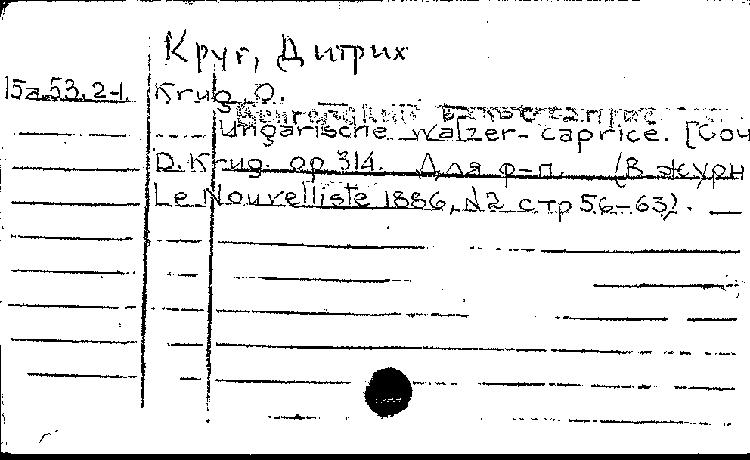 Круг, Дитрих
15a.53.2-1. Krug D.
Венгерский вальс-каприс
Ungarische Walzer-caprice. [Соч
D. Krug. op 314. Для ф-п. (В журн
Le Nouvelliste 1886, №2 стр 56-63).